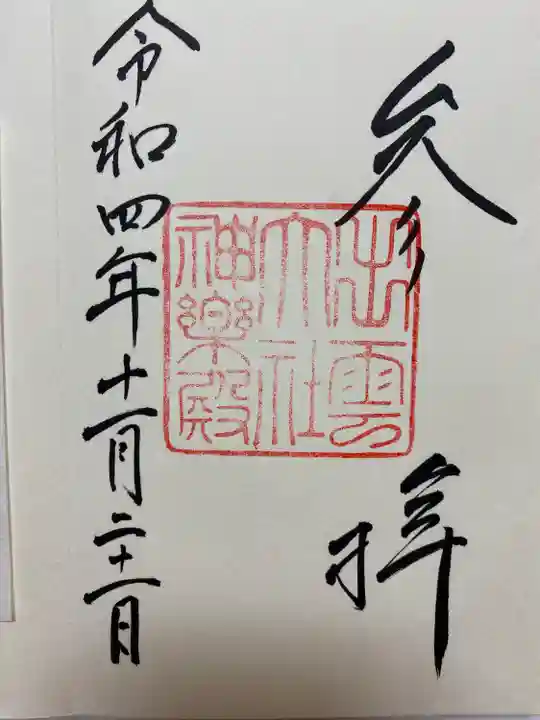 参拝
出雲
大社
神楽殿
令和四年十一月二十一日